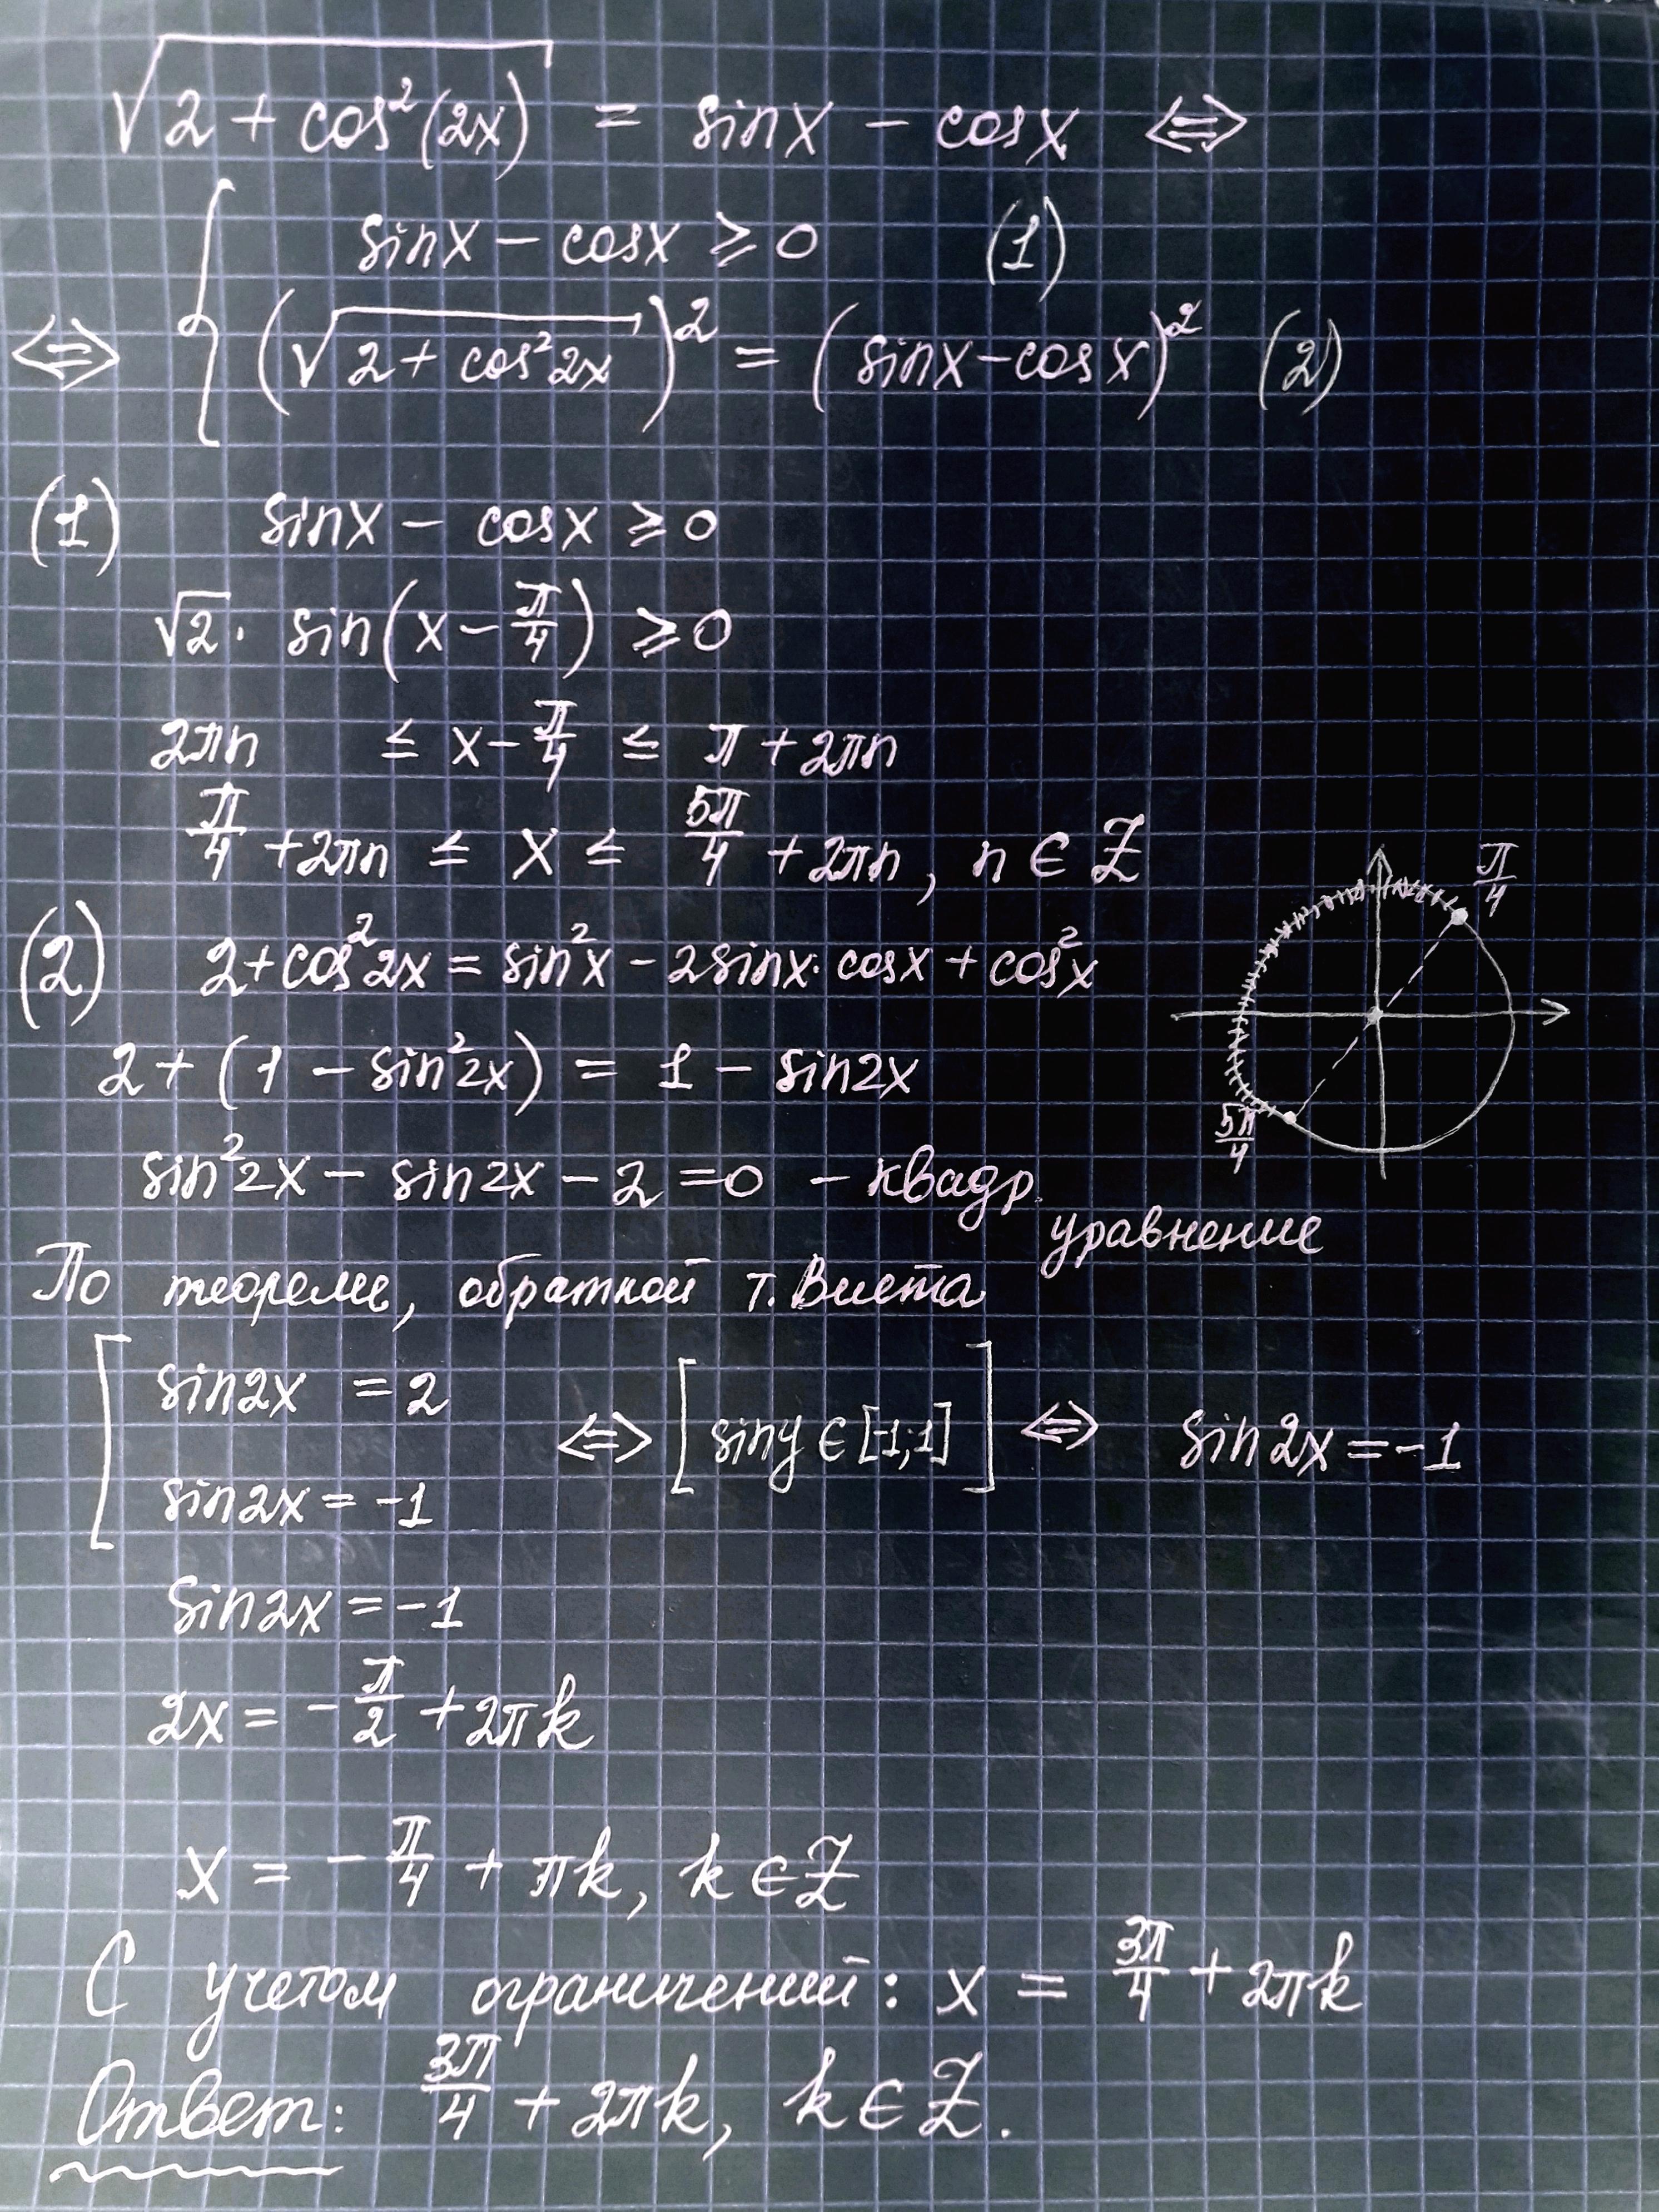 √(2 + cos²(2x)) = sinx − cosx ⇔
sinx − cosx ≥ 0 (1)
⇔ { (√(2 + cos²2x))² = (sinx − cosx)² (2)
(1) sinx − cosx ≥ 0
√2 · sin(x − π/4) ≥ 0
2πn ≤ x − π/4 ≤ π + 2πn
π/4 + 2πn ≤ x ≤ 5π/4 + 2πn, n ∈ Z
π/4
(2) 2 + cos²2x = sin²x − 2sinx · cosx + cos²x
2 + (1 − sin²2x) = 1 − sin2x
5π/4
sin²2x − sin2x − 2 = 0 – квадр.
уравнение
По теореме, обратной т. Виета
[ sin2x = 2
sin2x = −1 ⇔ [sin y ∈ [-1;1]] ⇔ sin2x = −1
sin2x = −1
2x = −π/2 + 2πk
x = −π/4 + πk, k ∈ Z
С учетом ограничений: x = 3π/4 + 2πk
Ответ: 3π/4 + 2πk, k ∈ Z.